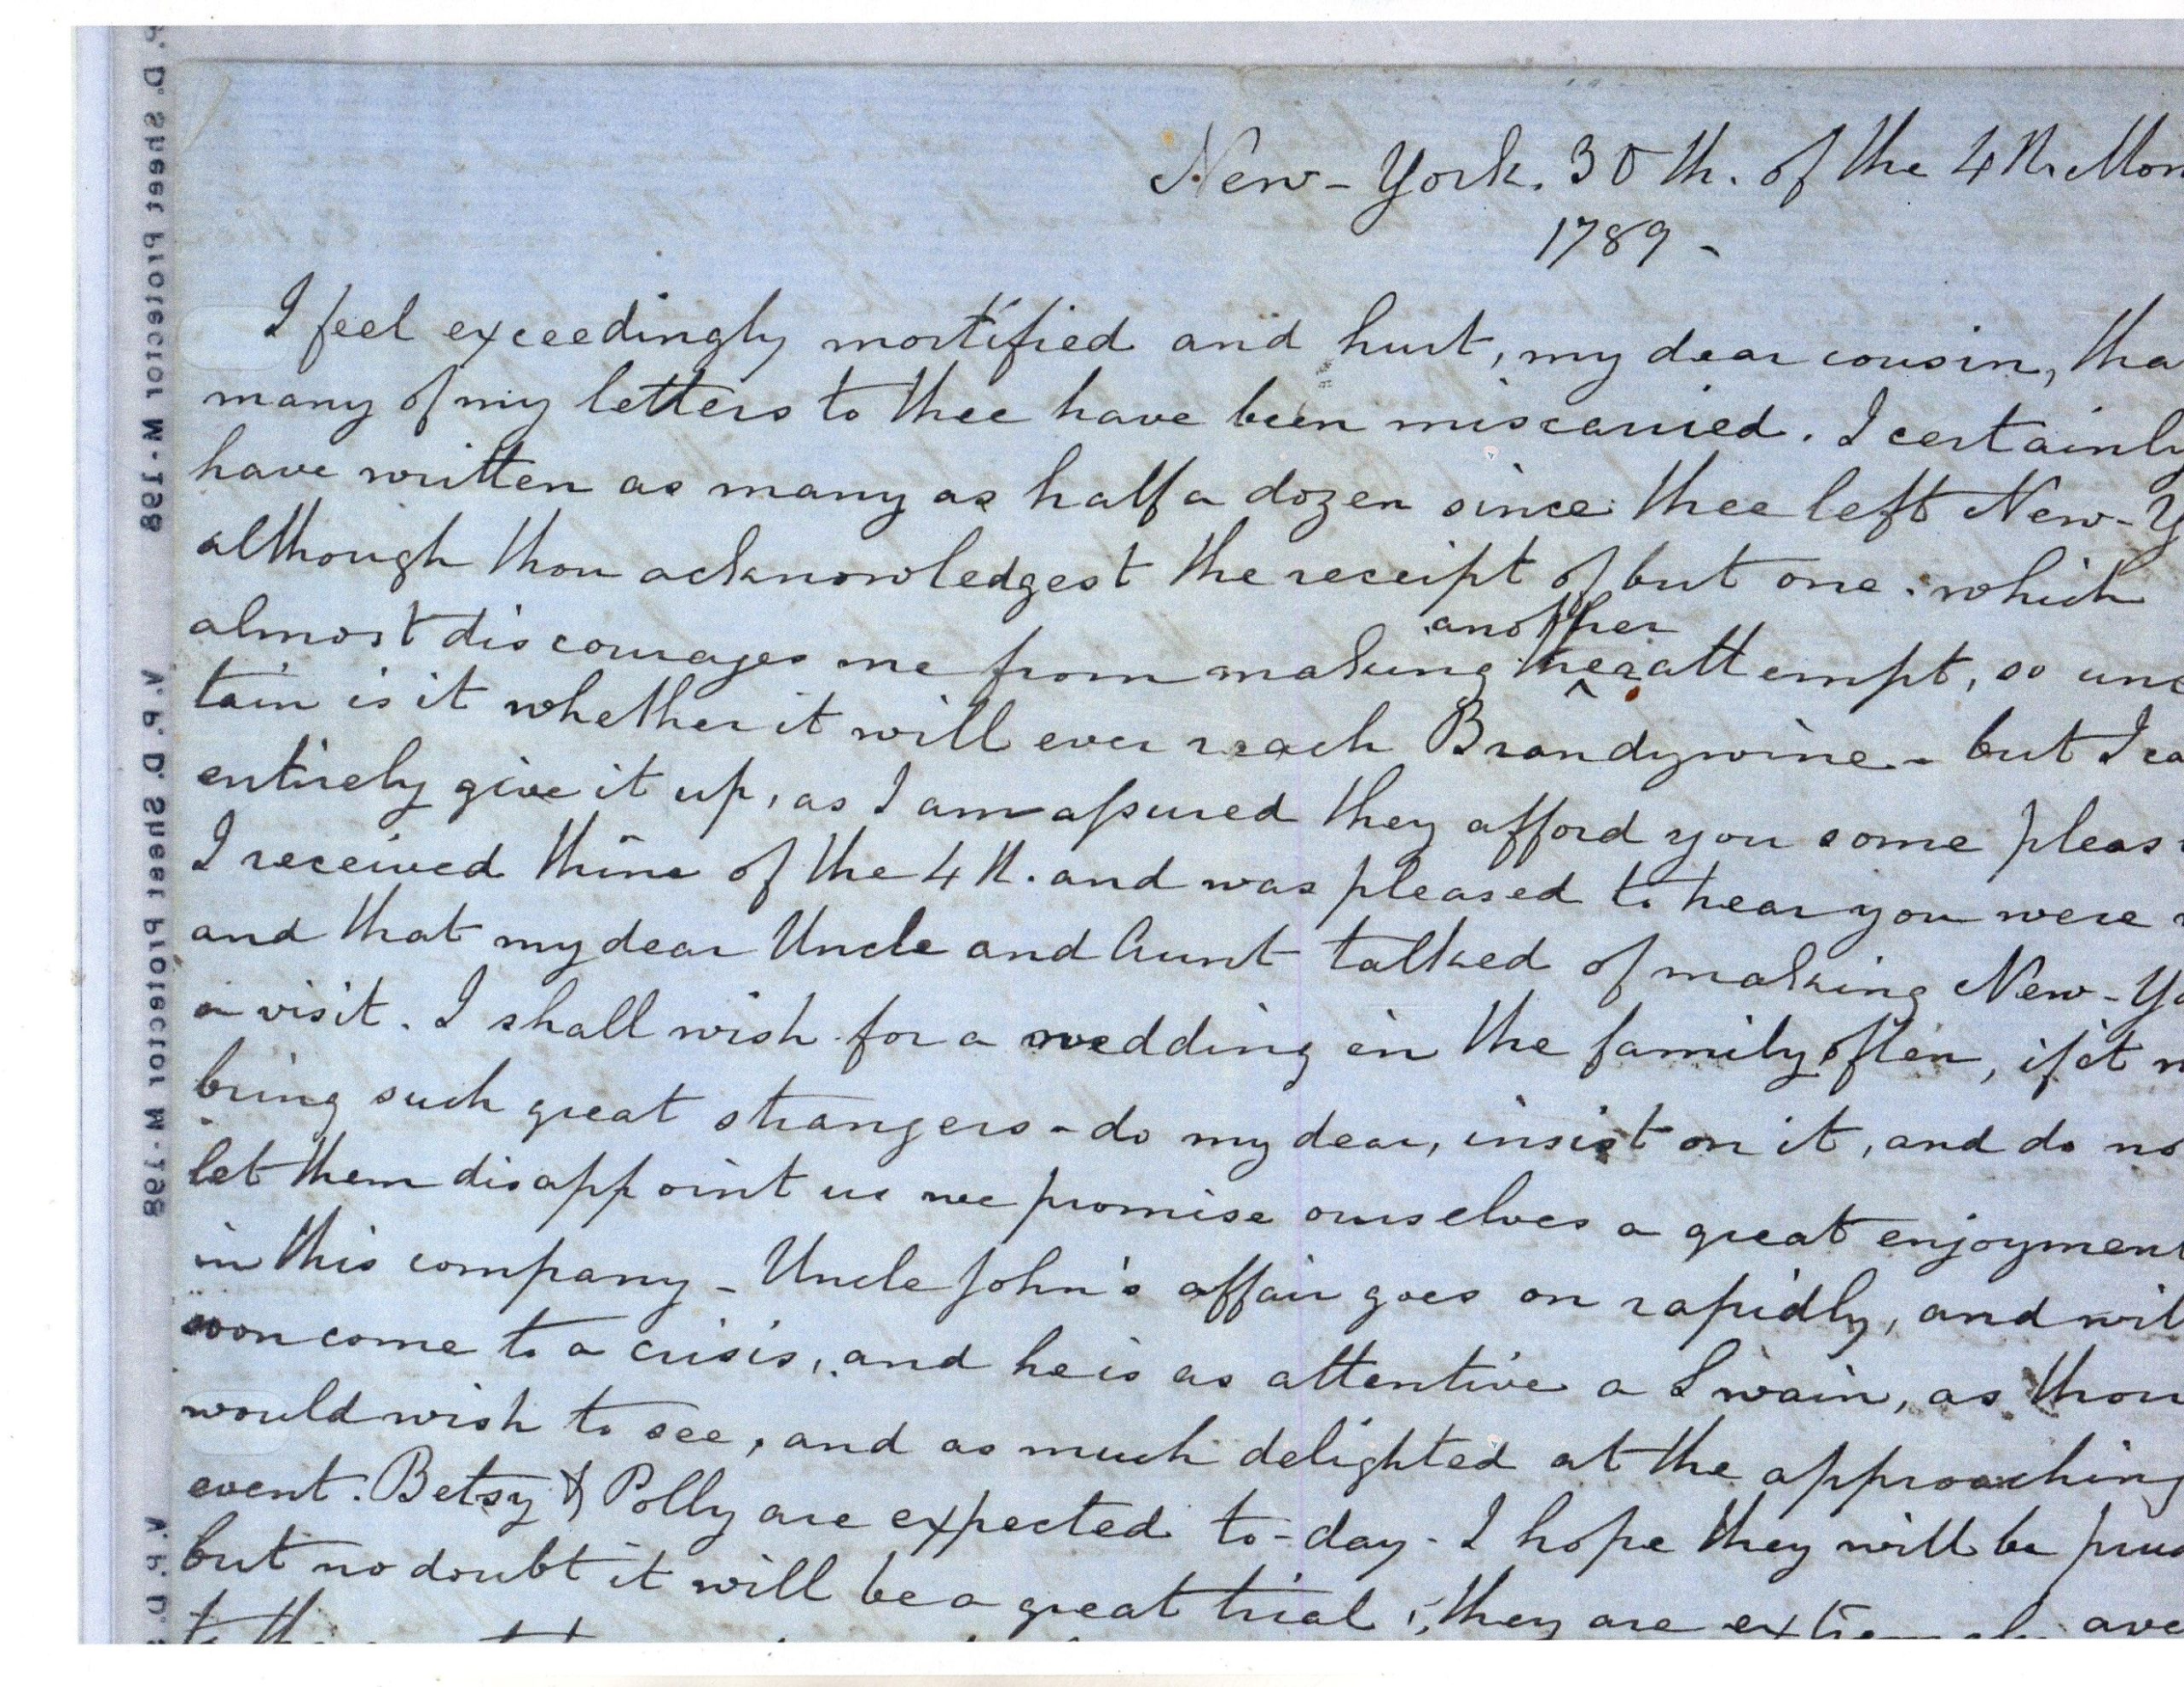 New-York. 30th. of the 4th. Mon
1789 -
I feel exceedingly mortified and hurt, my dear cousin, tha
many of my letters to thee have been miscarried. I certainly
have written as many as half a dozen since thee left New-Y
although thou acknowledgest the receipt of but one. which
another
almost discourages me from making attempt, so unc
tain is it whether it will ever reach Brandywine - but I ca
entirely give it up, as I am assured they afford you some pleas
I received thine of the 4th. and was pleased to hear you were
and that my dear Uncle and Aunt talked of making New-Yo
a visit. I shall wish for a wedding in the family often, if it
bring such great strangers - do my dear, insist on it, and do no
let them disappoint us we promise ourselves a great enjoyment
in this company - Uncle John's affair goes on rapidly, and wil
soon come to a crisis, and he is as attentive a Swain, as thou
would wish to see, and as much delighted at the approaching
event. Betsy & Polly are expected to-day - I hope they will be pru
but no doubt it will be a great trial, they are extremely ave
V.P.D. Sheet Protector M-198
V.P.D. Sheet Protector M-198
V.P.D.